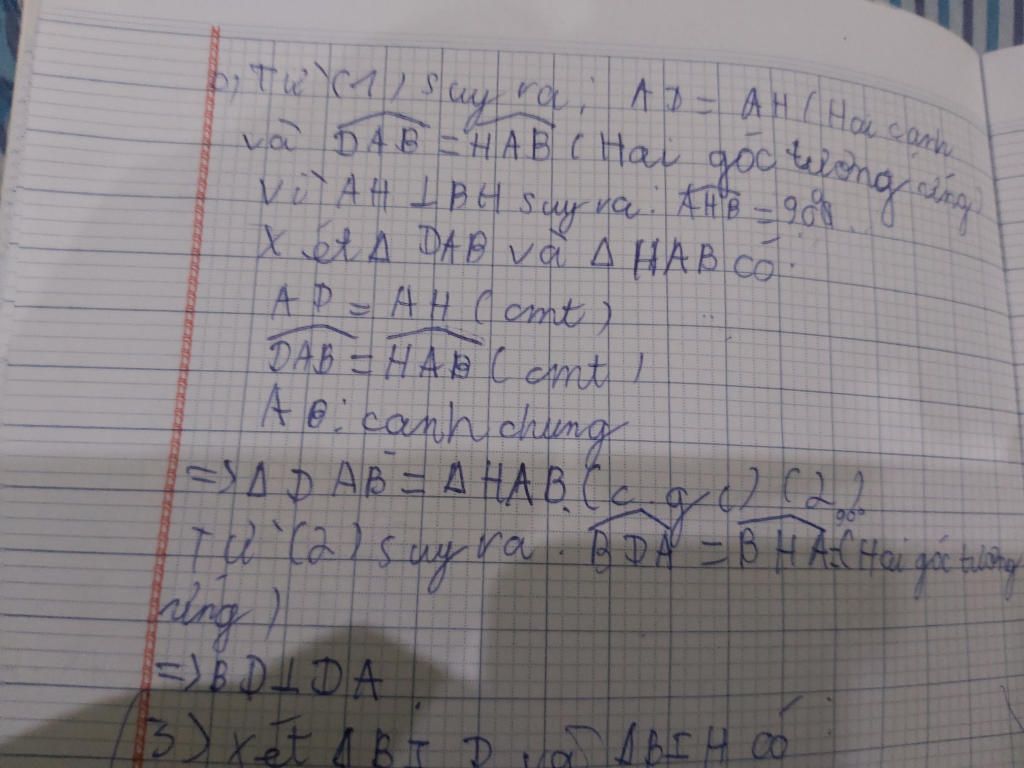 b, Từ (1) suy ra: AD = AH (Hai cạnh
và DAB = HAB (Hai góc tương ứng)
Vì AH ⊥ BH suy ra: AHB = 90°.
Xét Δ DAB và Δ HAB có:
AD = AH (cmt)
DAB = HAB (cmt)
AB: cạnh chung
=> Δ DAB = Δ HAB. (c g c) (2)
Từ (2) suy ra: BDA = BHA = 90° (Hai góc tương
ứng)
=> BD ⊥ DA
(3) Xét Δ BID và Δ BIH có